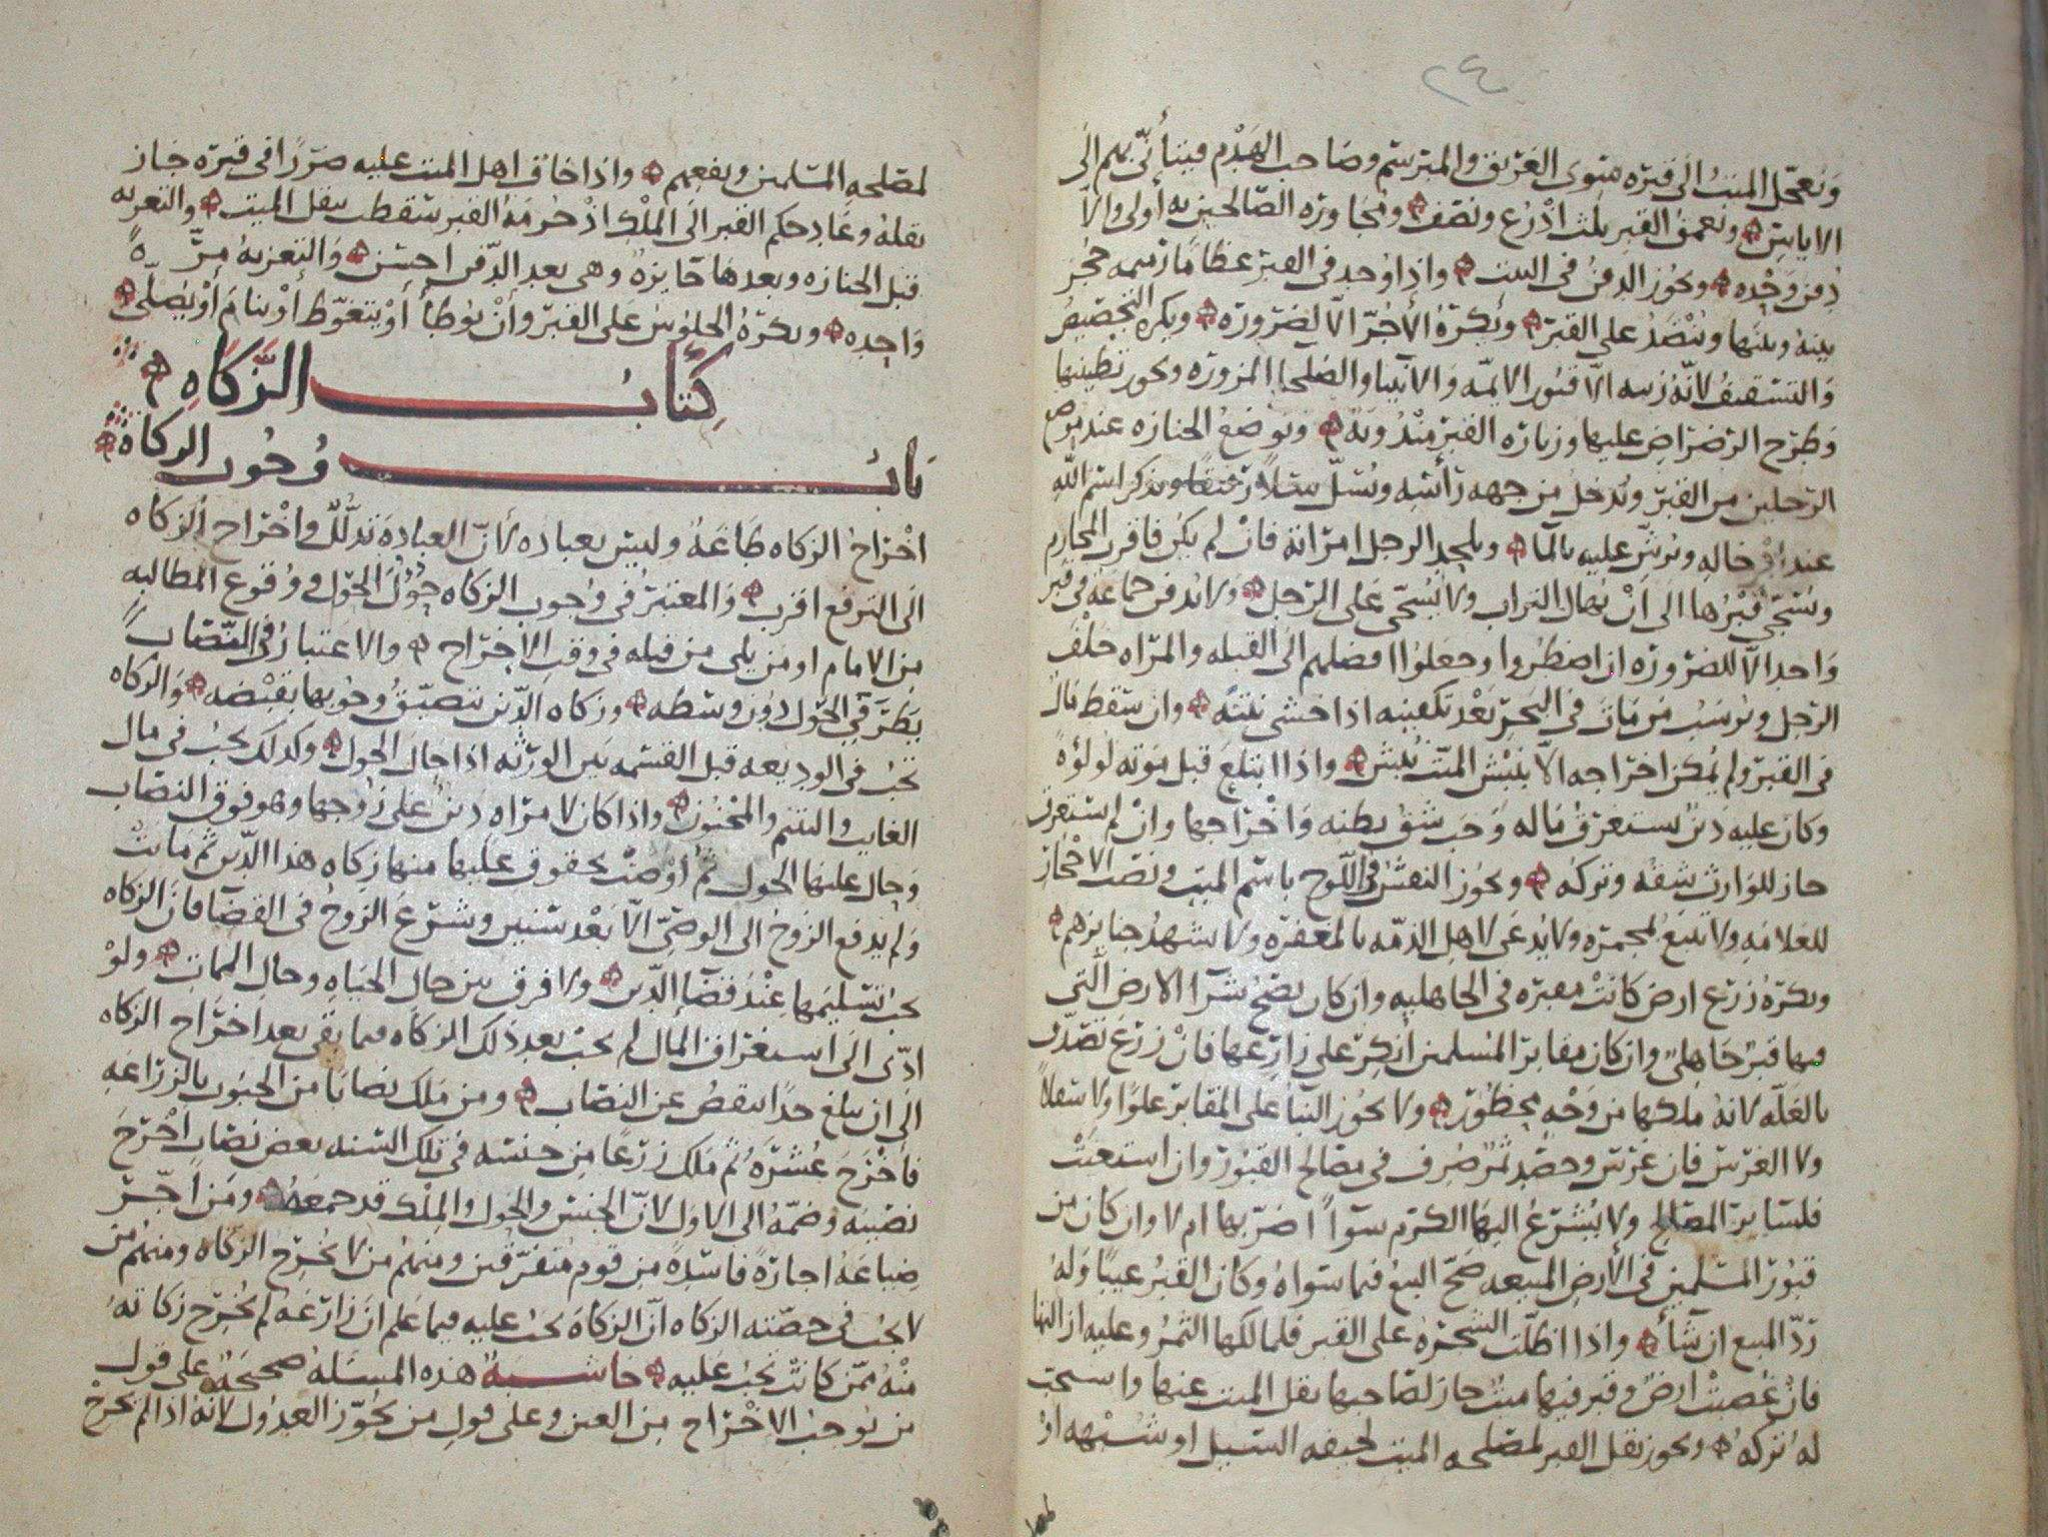 ٢٤
ويعجل الميت الى قبره سوى الغريق والمبرسم وصاحب الهدم فيتأنى بهم الى
الاياس ويعمق القبر ثلث اذرع ونصف ومجاورة الصالحين به أولى والا
دفن وحده ويجوز الدفن في البيت واذا وجد في القبر عظاما رميمه حجز
بينه وبينها وينضد على القبر ويكره الأجر الا لضروره ويكره التجصيص
والتسقيف لانه زينه الا قبور الايمه والانبيا والصلحا المزوره ويجوز تطيينها
وطرح الرضراض عليها وزياره القبر مندوبه وتوضع الجنازه عند موضع
الرجلين من القبر ويدخل من جهه رأسه ويسل سلا رفيقا ويذكر اسم الله
عند ادخاله ويرش عليه بالما ويلحد الرجل امرأته فان لم يكن فاقرب المحارم
ويسجى قبرها الى أن يهال التراب ولا يسجى على الرجل ولا يدفن جماعه في قبر
واحد الا للضروره ان اضطروا وجعلوا افضلهم الى القبله والمراه خلف
الرجل ويرسب من مات في البحر بعد تكفينه اذا خشي نتنه وان سقط مال
في القبر ولم يمكن اخراجه الا بنبش الميت نبش واذا ابتلع قبل موته لولؤة
وكان عليه دين يستغرق ماله وجب شق بطنه واخراجها وان لم يستغرق
جاز للوارث شقه وتركه ويجوز النقش في اللوح باسم الميت ونصب الاحجار
للعلامه ولا تتبع بمجمره ولا يدعى لاهل الذمه بالمغفره ولا يشهد جنايزهم
ويكره زرع ارض كانت مقبره في الجاهليه وان كان يصح شرآ الارض التي
فيها قبر جاهلي وان كان مقابر المسلمين أنكر على زارعها فان زرع تصدق
بالغله لانه ملكها من وجه محظور ولا يجوز البنآ على المقابر علوا ولا سفلا
ولا الغرس فان غرس وحصد ثمر صرف في مصالح القبور وان استغنت
فلسائر المصالح ولا يشرع اليها الكرم سوآ اضر بها ام لا وان كان من
قبور المسلمين في الأرض المبيعه صح البيع فيما سواه وكان القبر عيبا وله
رد المبيع ان شآء واذا اظلت الشجره على القبر فلمالكها الثمر وعليه ازالتها
فان غصبت ارض وقبر فيها ميت جاز لصاحبها نقل الميت عنها واستحب
له تركه ويجوز نقل القبر لمصلحه الميت لخيفه السيل او شبهه او
لمصلحه المسلمين ونفعهم واذا خاف اهل الميت عليه ضررا في قبره جاز
نقله وعاد حكم القبر الى الملك اذ حرمة القبر سقطت بنقل الميت والتعزيه
قبل الجنازه وبعدها جايزه وهي بعد الدفن احسن والتعزيه مرة
واحده ويكره الجلوس على القبر وأن يوطأ أو يتغوط أو ينام أو يصلى
كتاب الزكاه
باب وجوب الزكاة
اخراج الزكاه طاعه وليس بعباده لأن العبادة تذلل واخراج الزكاه
الى الترفع اقرب والمعتبر في وجوب الزكاه حؤول الحول ووقوع المطالبه
من الامام او من يلي من قبله في وقت الاخراج والاعتبار في النصاب
بطرفي الحول دون وسطه وزكاه الدين تتضيق وجوبها بقبضه والزكاه
تجب في الوديعه قبل القسمه بين الورثه اذا حال الحول وكذلك تجب في مال
الغايب واليتيم والمجنون واذا كان لامراه دين على زوجها وهو فوق النصاب
وحال عليها الحول ثم أوصت بحقوق عليها منها زكاه هذا الدين ثم ماتت
ولم يدفع الزوج الى الوصي الا بعد سنين وشرع الزوج في القضا فان الزكاه
يجب تسليمها عند قضا الدين ولا فرق بين حال الحياه وحال الممات ولو
ادى الى استغراق المال لم يجب بعد ذلك الزكاه فيما بقي بعد اخراج الزكاه
الى ان يبلغ حدا ينقص عن النصاب ومن ملك نصابا من الحبوب بالزراعه
فأخرج عشره ثم ملك زرعا من جنسه في تلك السنه بعض نصاب اخرج
نصيبه وضمه الى الاول لان الجنس والحول والملك قد جمعه ومن اجر
ضياعه اجارة فاسدة من قوم متفرقين ومنهم من لا يخرج الزكاه ومنهم من
لا يجب في حصته الزكاه ان الزكاة يجب عليه فيما علم ان زارعه لم يخرج زكاته
منه ممن كانت تجب عليه حاشية هذه المسئله صحيحة على قول
من يوجب الاخراج من العين وعلى قول من يجوز العدول لانه اذا لم يخرج